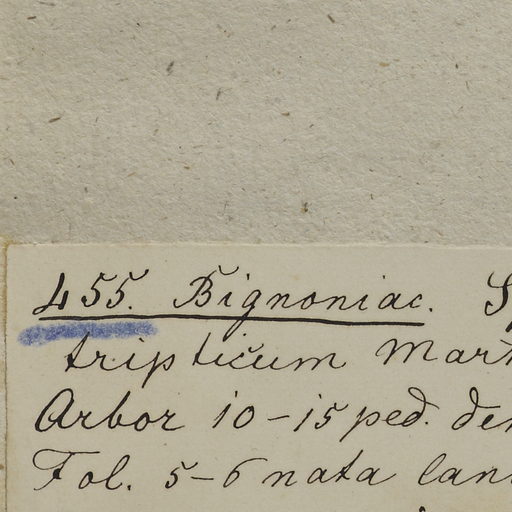 455. Bignoniac. S
tripticum Mart
Arbor 10-15 ped. de
Fol. 5-6 nata lan